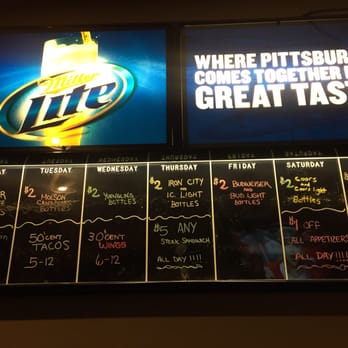 Miller
Lite
WHERE PITTSBUR
COMES TOGETHER
GREAT TAS
TUESDAY
$2 MOLSON
BOTTLES
50¢ CENT
TACOS
5-12
WEDNESDAY
$2 YUENGLING
BOTTLES
30¢ CENT
WINGS
6-12
THURSDAY
$2 IRON CITY
OR
I.C. LIGHT
BOTTLES
$5 ANY
STEAK SANDWICH
ALL DAY!!!!
FRIDAY
$2 BUDWEISER
AND
BUD LIGHT
BOTTLES
SATURDAY
$2 Coors
and Coors Light
Bottles
$1 OFF
ALL APPETIZERS
ALL DAY!!!!